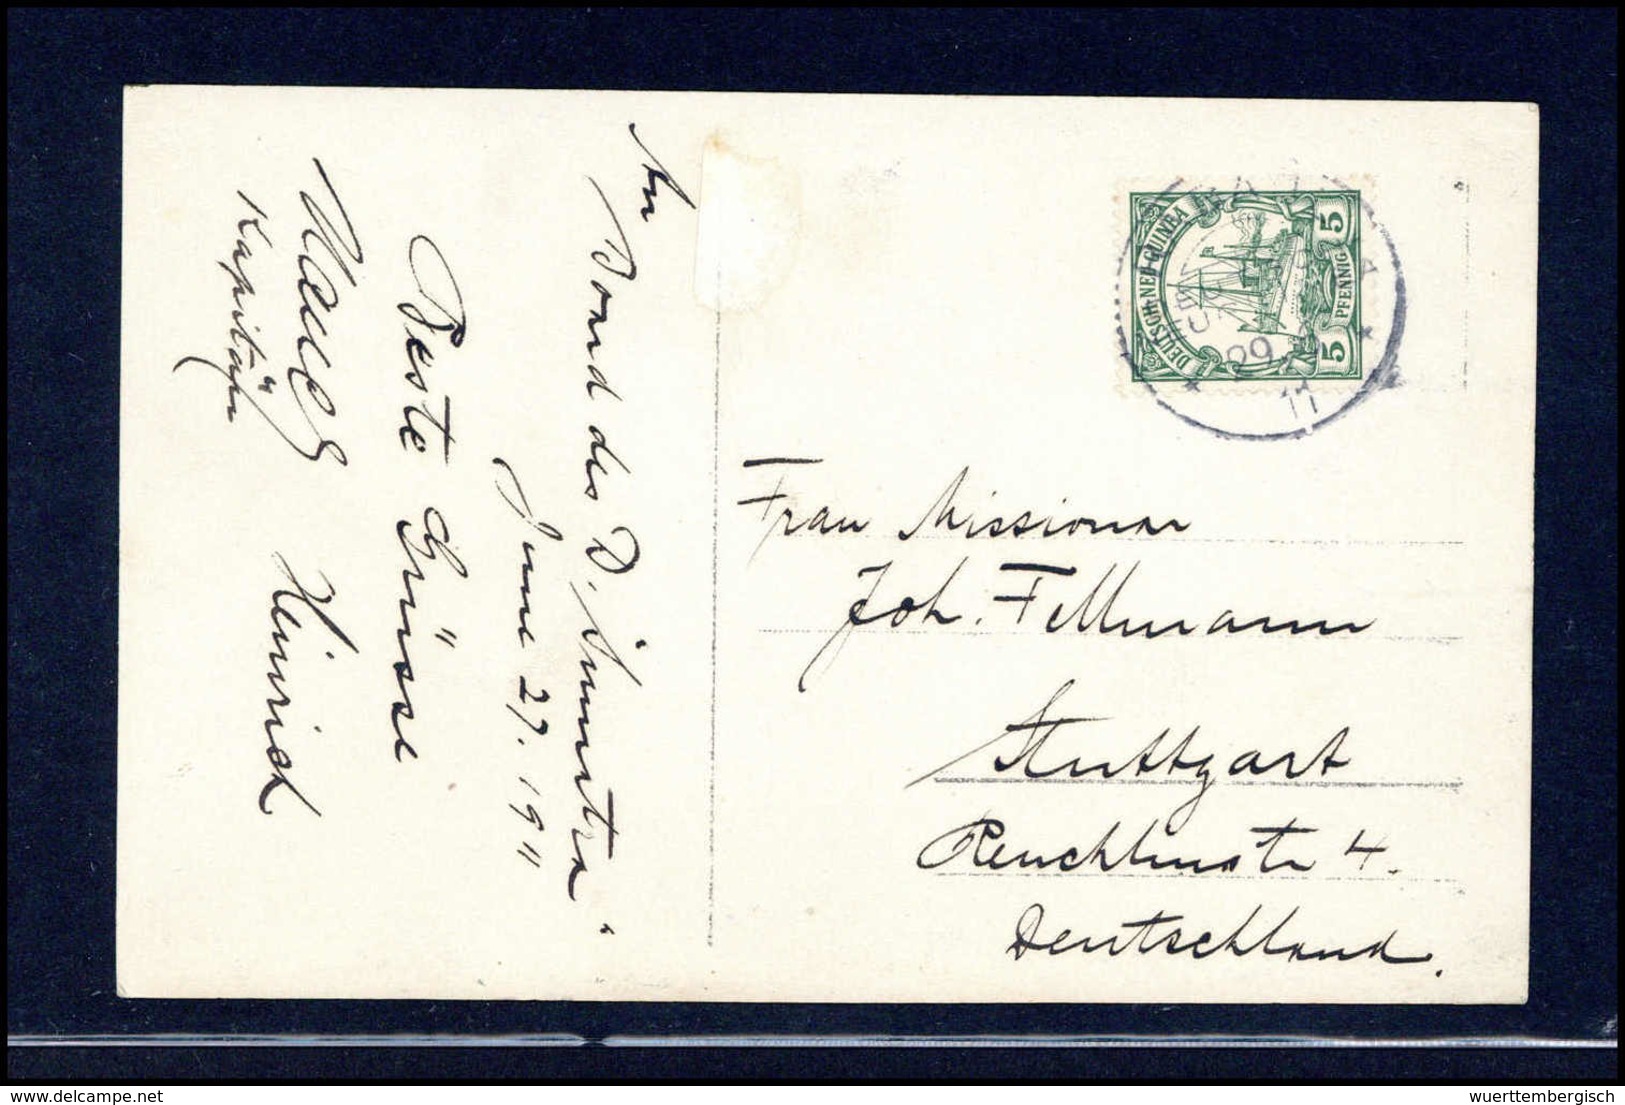 An Bord des D. „Sumatra“
June 27. 1911
Beste Grüsse
Heinrich
Kapitän
DEUTSCH-NEU-GUINEA
5 PFENNIG 5
29
11
Frau Missionar
Joh. Fellmann
Stuttgart
Reuchlinstr 4.
Deutschland.
delcampe.net
wuerttembergisch